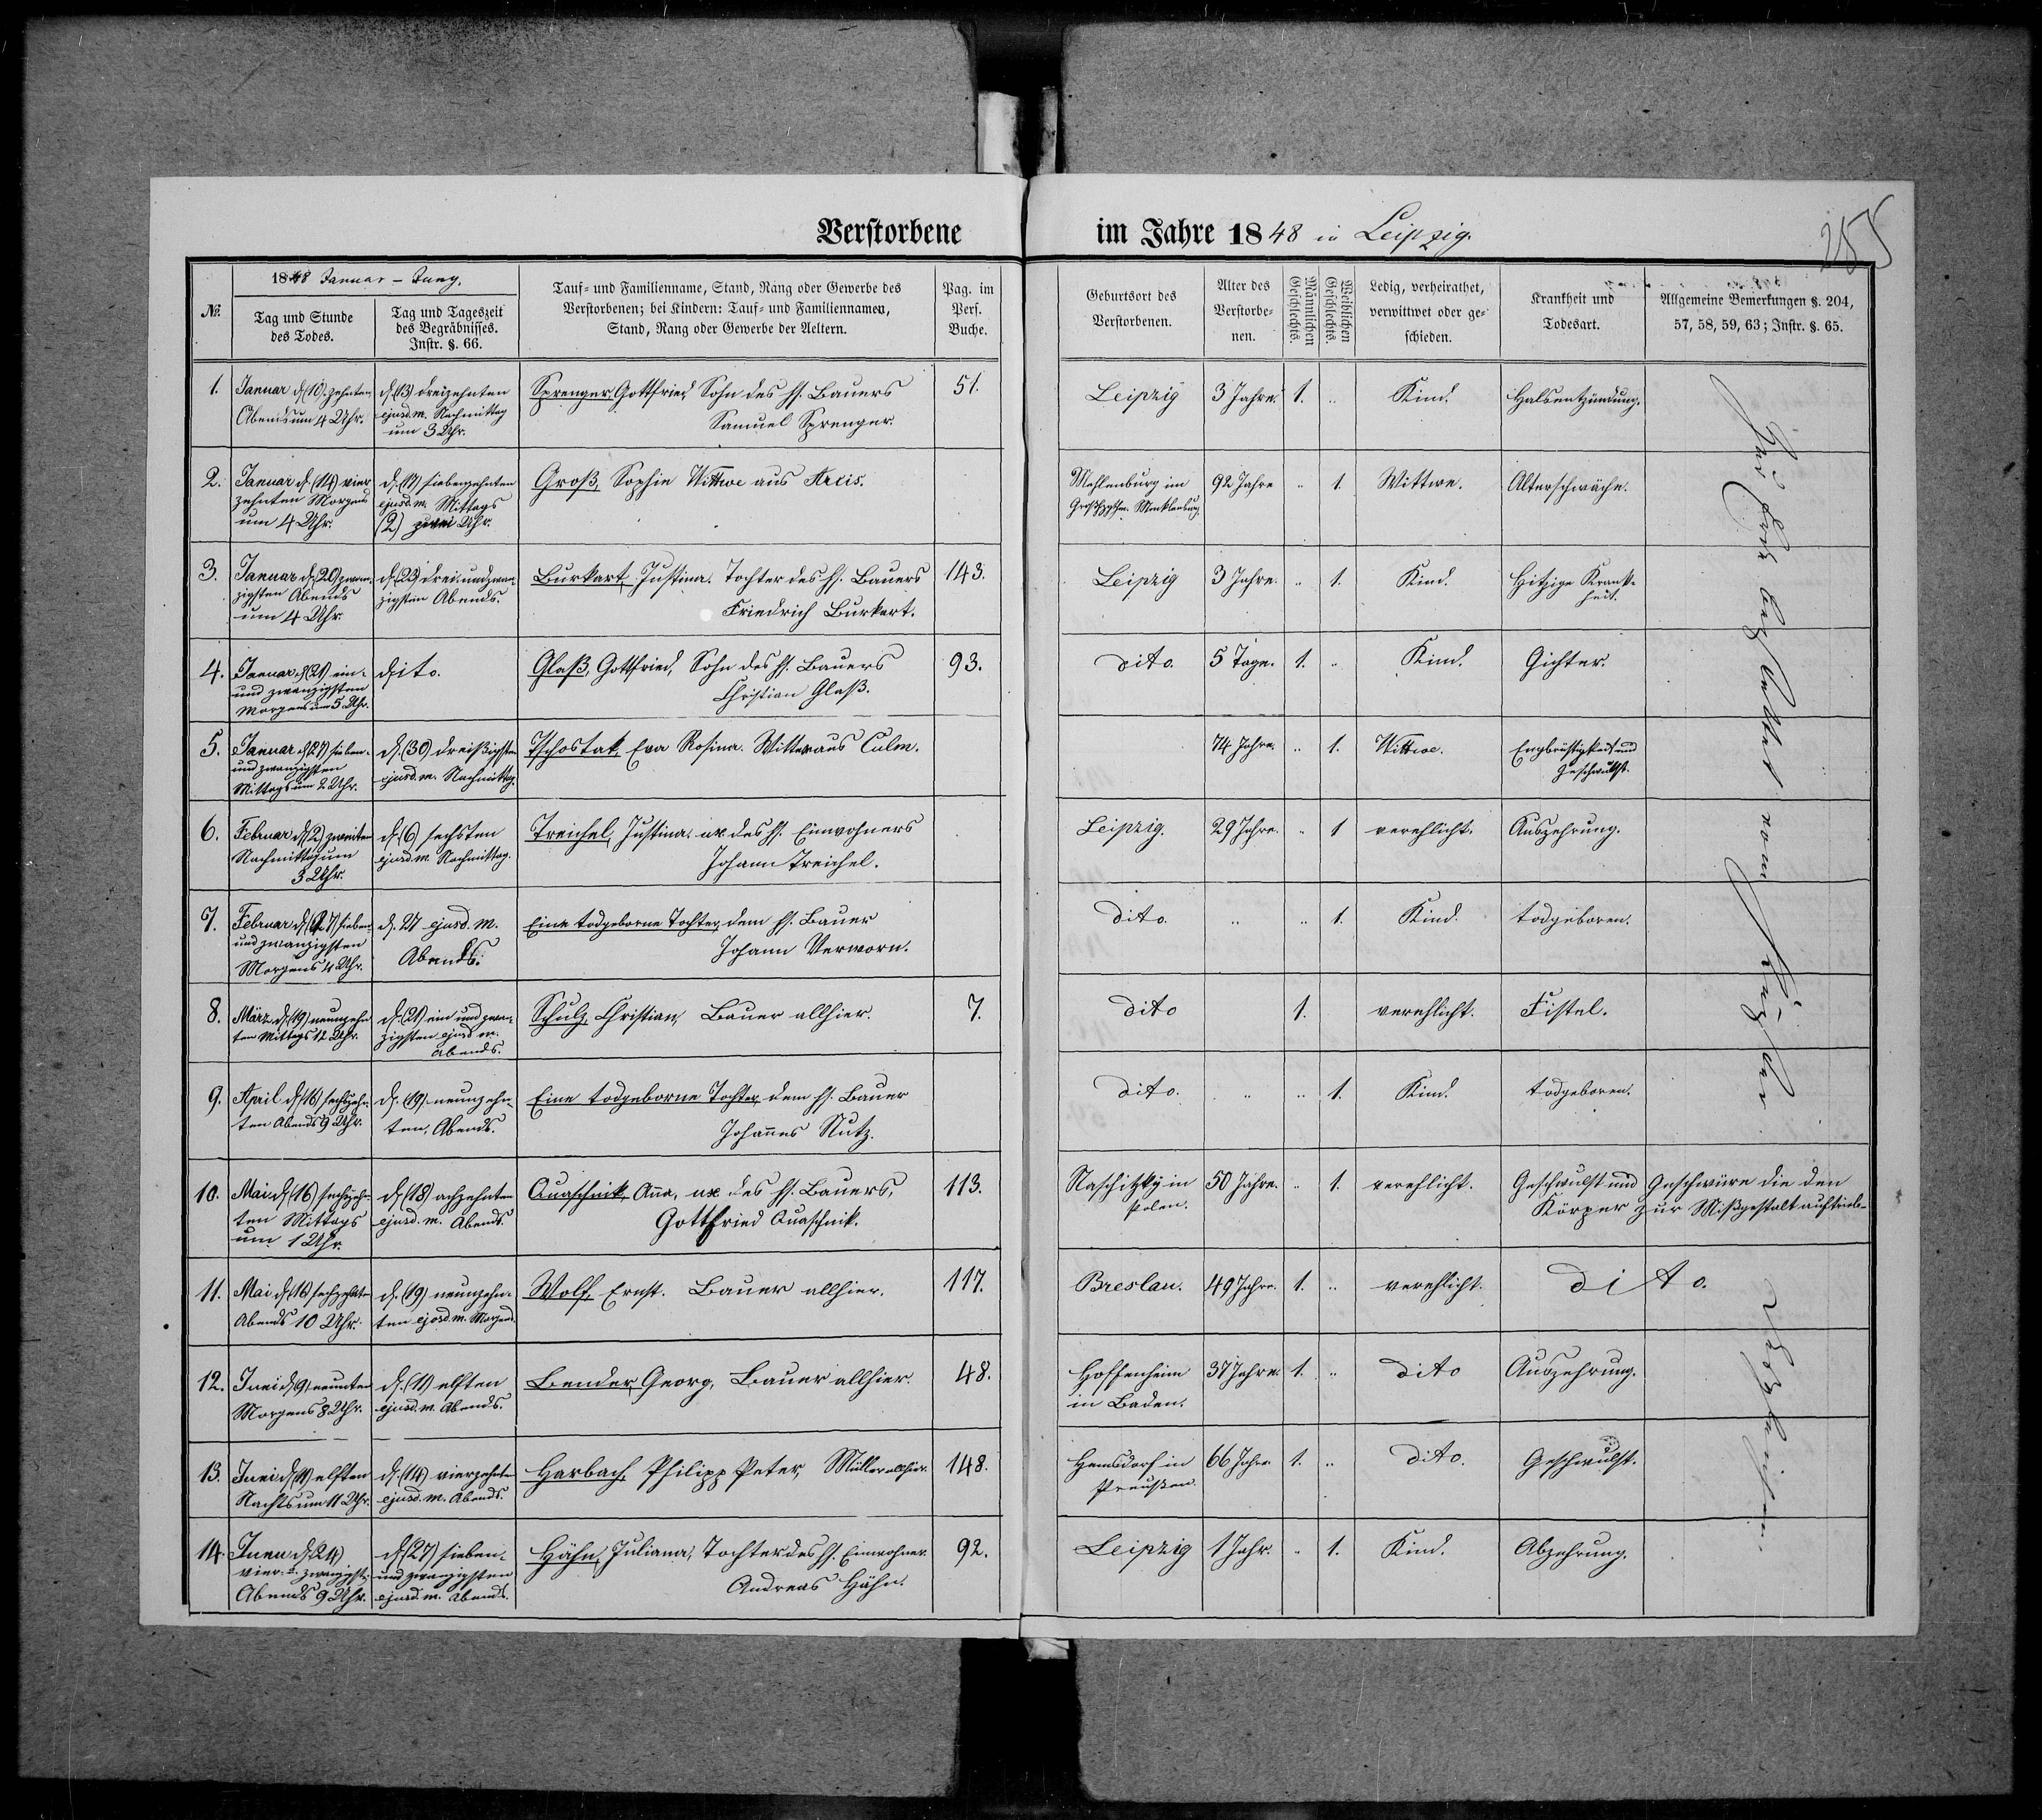 Verstorbene im Jahre 1848 in Leipzig.
255
№.
1848 Januar - Juny.
Tag und Stunde
des Todes.
Tag und Tageszeit
des Begräbnisses.
Instr. §. 66.
Tauf- und Familienname, Stand, Rang oder Gewerbe des
Verstorbenen; bei Kindern: Tauf- und Familiennamen,
Stand, Rang oder Gewerbe der Aeltern.
Pag. im
Pers.
Buche.
Geburtsort des
Verstorbenen.
Alter des
Verstorbe-
nen.
Männlichen
Geschlechts.
Weiblichen
Geschlechts.
Ledig, verheirathet,
verwittwet oder ge-
schieden.
Krankheit und
Todesart.
Allgemeine Bemerkungen §. 204,
57, 58, 59, 63; Instr. §. 65.
1.
Januar d. (10). zehnten
Abends um 4 Uhr.
d. (13) dreizehnten
ejusd. m. Nachmittag
um 3 Uhr.
Sprenger, Gottfried, Sohn des hs. Bauers
Samuel Sprenger.
51.
Leipzig
3 Jahre.
1.
"
Kind.
Halsentzündung.
2.
Januar d. (14) vier
zehnten Morgens
um 4 Uhr.
d. (17) siebenzehnten
ejusd. m. Mittags
(2) zwei Uhr.
Groß, Sophie Wittwe aus Arcis.
Meklenburg im
Großhgthm. Mecklenburg.
92 Jahre
"
1.
Wittwe.
Altersschwäche.
3.
Januar d. (20) zwan-
zigsten Abends
um 4 Uhr.
d. (23) drei und zwan-
zigsten Abends.
Burkart, Justina. Tochter des hs. Bauers
Friedrich Burkart.
143.
Leipzig
3 Jahre.
"
1.
Kind.
Hitzige Krank-
heit.
4.
Januar d. (21) ein-
und zwanzigsten
Morgens um 5 Uhr.
dito.
Glaß, Gottfried, Sohn des hs. Bauers
Christian Glaß.
93.
dito.
5 Tage.
1.
"
Kind.
Gichter.
5.
Januar d. (27) sieben-
und zwanzigsten
Mittags um 2 Uhr.
d. (30) dreißigsten
ejusd. m. Nachmittag.
Tschostak, Eva Rosina. Wittwe aus Culm.
74 Jahre.
"
1.
Wittwe.
Engbrüstigkeit und
Geschwulst.
6.
Februar d. (2) zweiten
Nachmittag um
3 Uhr.
d. (6) sechsten
ejusd. m. Nachmittag.
Treichel, Justina. ux des hs. Einwohners
Johann Treichel.
Leipzig.
29 Jahre.
"
1
verehlicht.
Auszehrung.
7.
Februar d. (27) sieben
und zwanzigsten
Morgens 4 Uhr.
d. 27 ejusd. m.
Abends.
Eine todgeborne Tochter, dem hs. Bauer
Johann Verworn.
dito.
"
"
1.
Kind.
todgeboren.
8.
März d. (19) neunzehn
ten Mittags 12 Uhr.
d. (21) ein und zwan-
zigsten ejusd m.
Abends.
Schulz, Christian, Bauer allhier.
7.
dito
1.
verehlicht.
Fistel.
9.
April d. (16) sechszehn-
ten Abends 9 Uhr.
d. (19) neunzehn-
ten, Abends.
Eine todgeborne Tochter, dem hs. Bauer
Johannes Nutz.
dito.
"
"
1.
Kind.
todgeboren.
10.
Mai d. (16) sechszehn-
ten Mittags
um 1 Uhr.
d. (18) achzehnten
ejusd. m. Abends.
Quaschnik, Anna, ux des hs. Bauers,
Gottfried Quaschnik.
113.
Naschitzky in
Polen.
50 Jahre.
"
1.
verehlicht.
Geschwulst und Geschwüre die den
Körper zur Mißgestalt auftrieb-
11.
Mai d. (16) sechzehnten
Abends 10 Uhr.
d. (19) neunzehn-
ten ejusd. m. Morgend.
Wolf, Ernst. Bauer allhier.
117.
Breslau.
49 Jahre.
1.
"
verehlicht.
dito.
12.
Juni d. 9, neunten
Morgens 8 Uhr.
d. (11) elften
ejusd. m. Abends.
Bender, Georg, Bauer allhier.
48.
Hoffenheim
in Baden.
37 Jahre.
1.
"
dito
Auszehrung.
13.
Juni d. (11) elften
Nachts um 11 Uhr.
d. (14) vierzehnten
ejusd. m. Abends.
Harbach, Philipp Peter, Müller allhier.
148.
Hansdorf in
Preußen.
66 Jahre
1.
"
dito.
Geschwulst.
14.
Juni d. (24)
vier- u. zwanzigst.
Abends 9 Uhr.
d. (27) sieben-
und zwanzigsten
ejusd. m. Abends.
Hähn, Juliana, Tochter des hs. Einwohner
Andreas Hähn.
92.
Leipzig
1 Jahr.
"
1.
Kind.
Abzehrung.